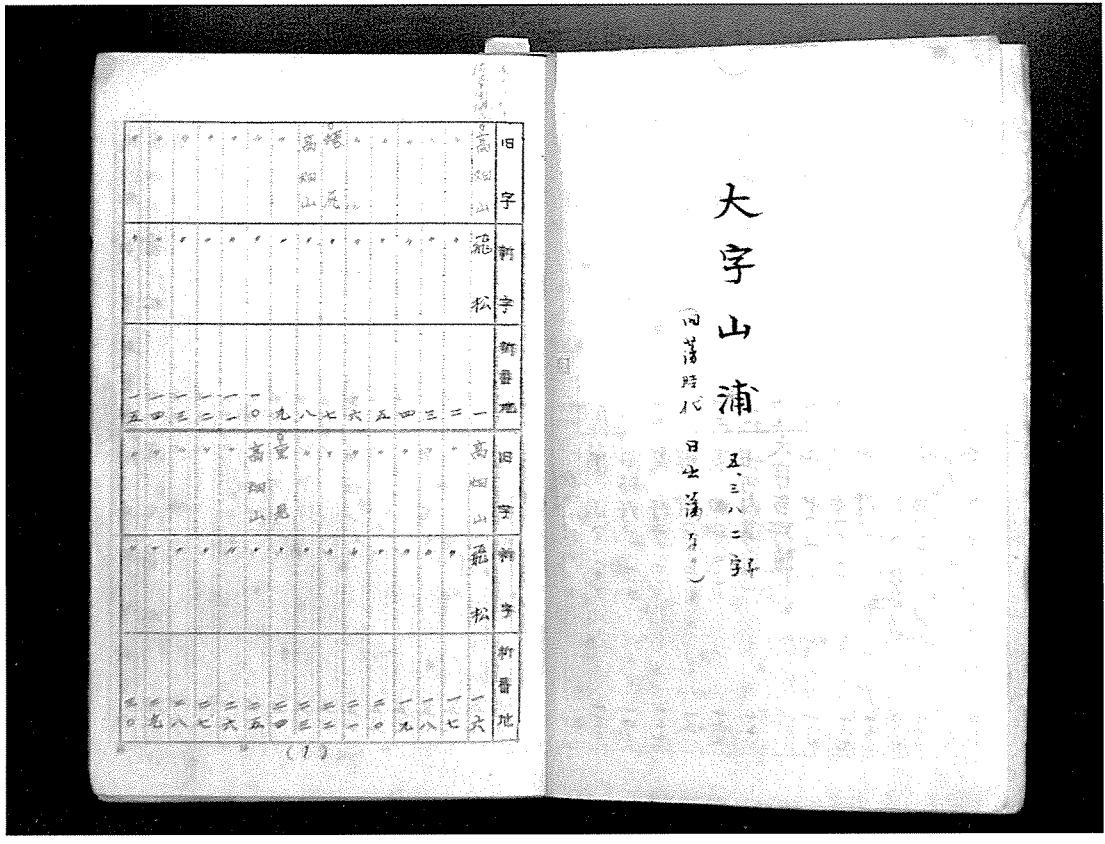 大字山浦 五、三八二字
(旧藩時代 日出藩
旧字 新字 新番地
高畑山 飛松 一
〃 〃 二
〃 〃 三
〃 〃 四
〃 〃 五
〃 〃 六
尾 〃 七
高畑山 〃 八
〃 〃 九
〃 〃 一〇
〃 〃 一一
〃 〃 一二
〃 〃 一三
〃 〃 一四
〃 〃 一五
旧字 新字 新番地
高畑山 飛松 一六
〃 〃 一七
〃 〃 一八
〃 〃 一九
〃 〃 二〇
〃 〃 二一
〃 〃 二二
〃 〃 二三
見 〃 二四
高畑山 〃 二五
〃 〃 二六
〃 〃 二七
〃 〃 二八
〃 〃 二九
〃 〃 三〇
(1)